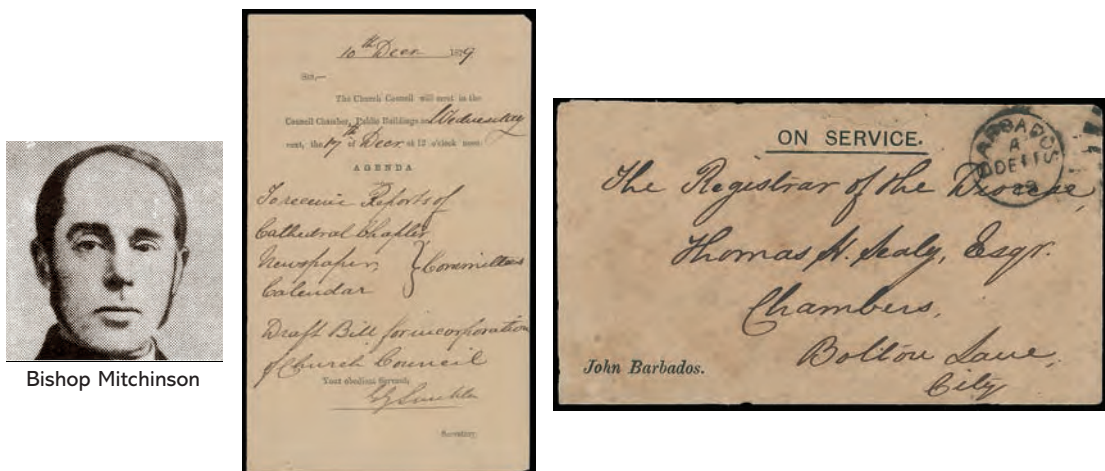 Bishop Mitchinson
10th Decr. 1879
Sir,—
The Church Council will meet in the
Council Chamber, Public Buildings on Wednesday
next, the 17th of Decr. at 12 o'clock noon.
AGENDA
To receive Reports of
Cathedral Chapter
Newspaper } Committees
Calendar
Draft Bill for incorporation
of Church Council
Your obedient Servant,
Secretary.
ON SERVICE.
BARBADOS
A
DE 11
The Registrar of the Diocese,
Thomas H. Sealy, Esqr.
Chambers,
Bolton Lane,
City
John Barbados.